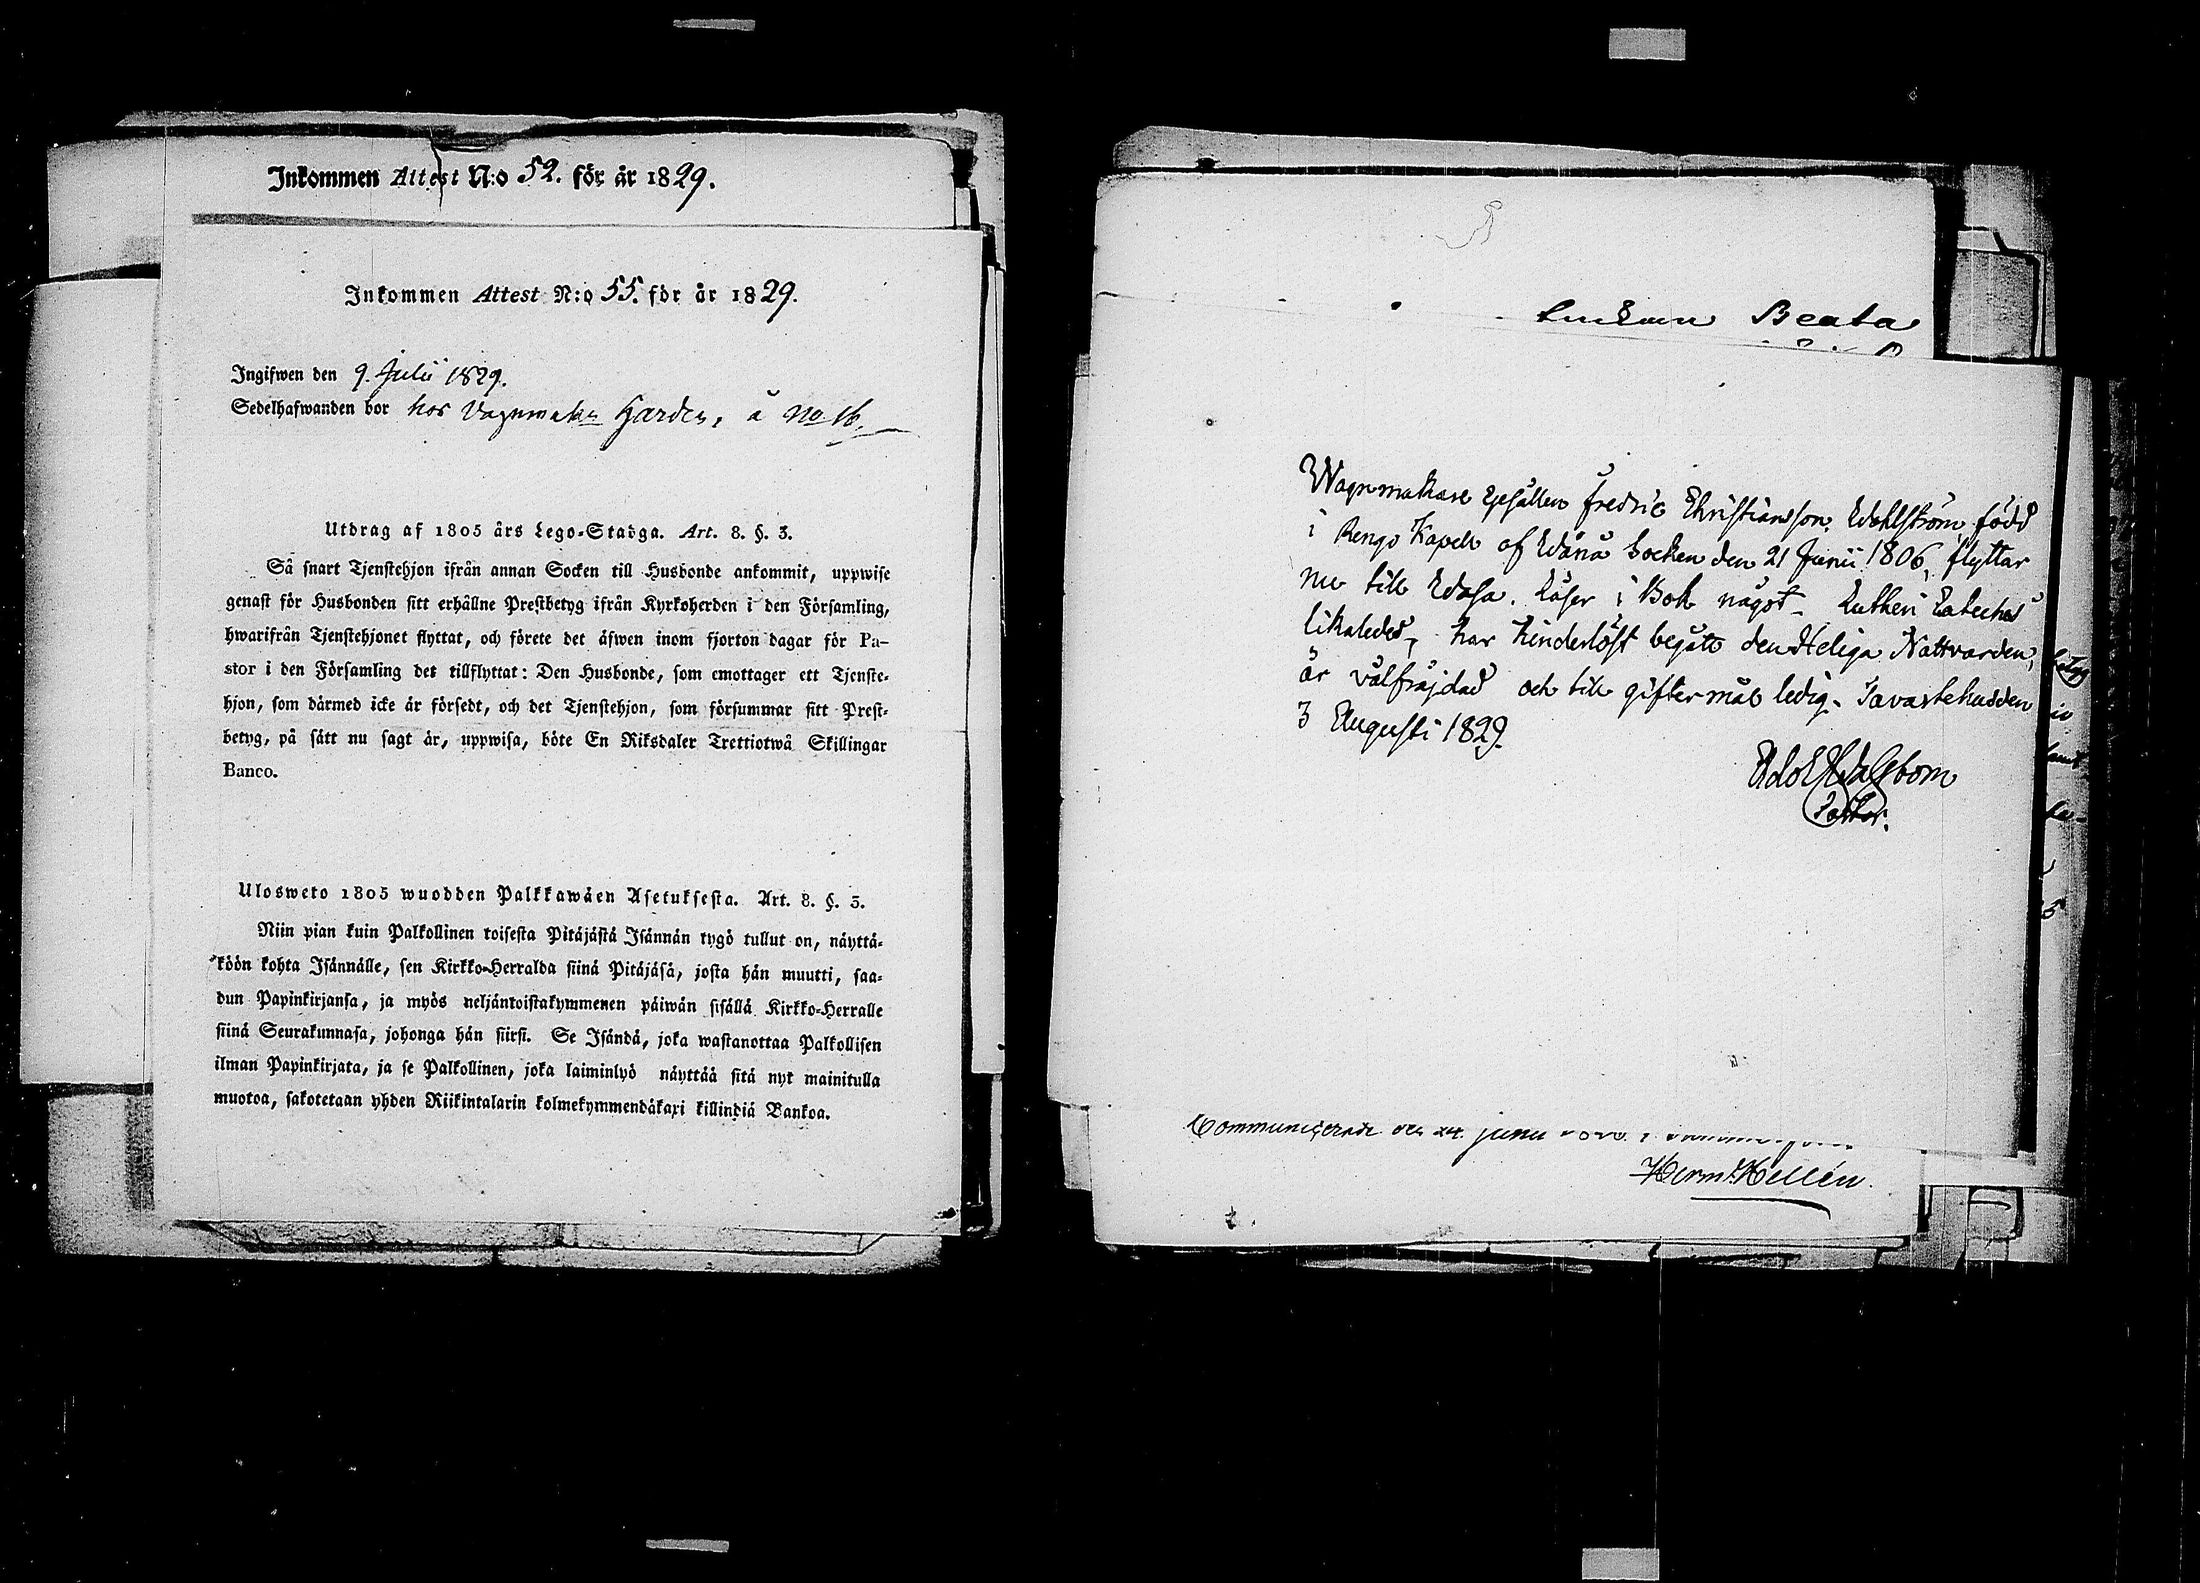 Inkommen Attest N:o 52. för år 1829.
Inkommen Attest N:o 55. för år 1829.
Ingifwen den 9. Julii 1829.
Sedelhafwanden bor hos Vagnmakar Gardes, å No 16.
Utdrag af 1805 års Lego-Stadga. Art. 8. §. 3.
Så snart Tjenstehjon ifrån annan Socken till Husbonde ankommit, uppwise
genast för Husbonden sitt erhållne Prestbetyg ifrån Kyrkoherden i den Församling,
hwarifrån Tjenstehjonet flyttat, och förete det äfwen inom fjorton dagar för Pa-
stor i den Församling det tillflyttat: Den Husbonde, som emottager ett Tjenste-
hjon, som därmed icke är försedt, och det Tjenstehjon, som försummar sitt Prest-
betyg, på sätt nu sagt är, uppwisa, böte En Riksdaler Trettiotwå Skillingar
Banco.
Ulosweto 1805 wuodden Palkkawäen Asetuksesta. Art. 8. §. 3.
Niin pian kuin Palkollinen toisesta Pitäjästä Isännän tygö tullut on, näyttä-
köön kohta Isännälle, sen Kirkko-Herralda siinä Pitäjäsä, josta hän muutti, saa-
dun Papinkirjansa, ja myös neljäntoistakymmenen päiwän sisällä Kirkko-Herralle
siinä Seurakunnasa, johonga hän siirsi. Se Isändä, joka wastanottaa Palkollisen
ilman Papinkirjata, ja se Palkollinen, joka laiminlyö näyttää sitä nyt mainitulla
muotoa, sakotetaan yhden Riikintalarin kolmekymmendäkaxi killindiä Bankoa.
Enckan Beata
Wagnmakare Gesällen Fredric Christiansson Wahlström, född
i Rengo Kapell af Wånå Socken den 21 Junii 1806, flyttar
nu till Wasa. Läser i Bok något. Lutheri Cateches
likaledes, har hinderlöst begått den Heliga Nattvarden,
är välfräjdad och till giftermål ledig. Tavastehus den
3 Augusti 1829.
Adolf
Pastor.
Communicerade den 24 junii
Herm: Hellén.